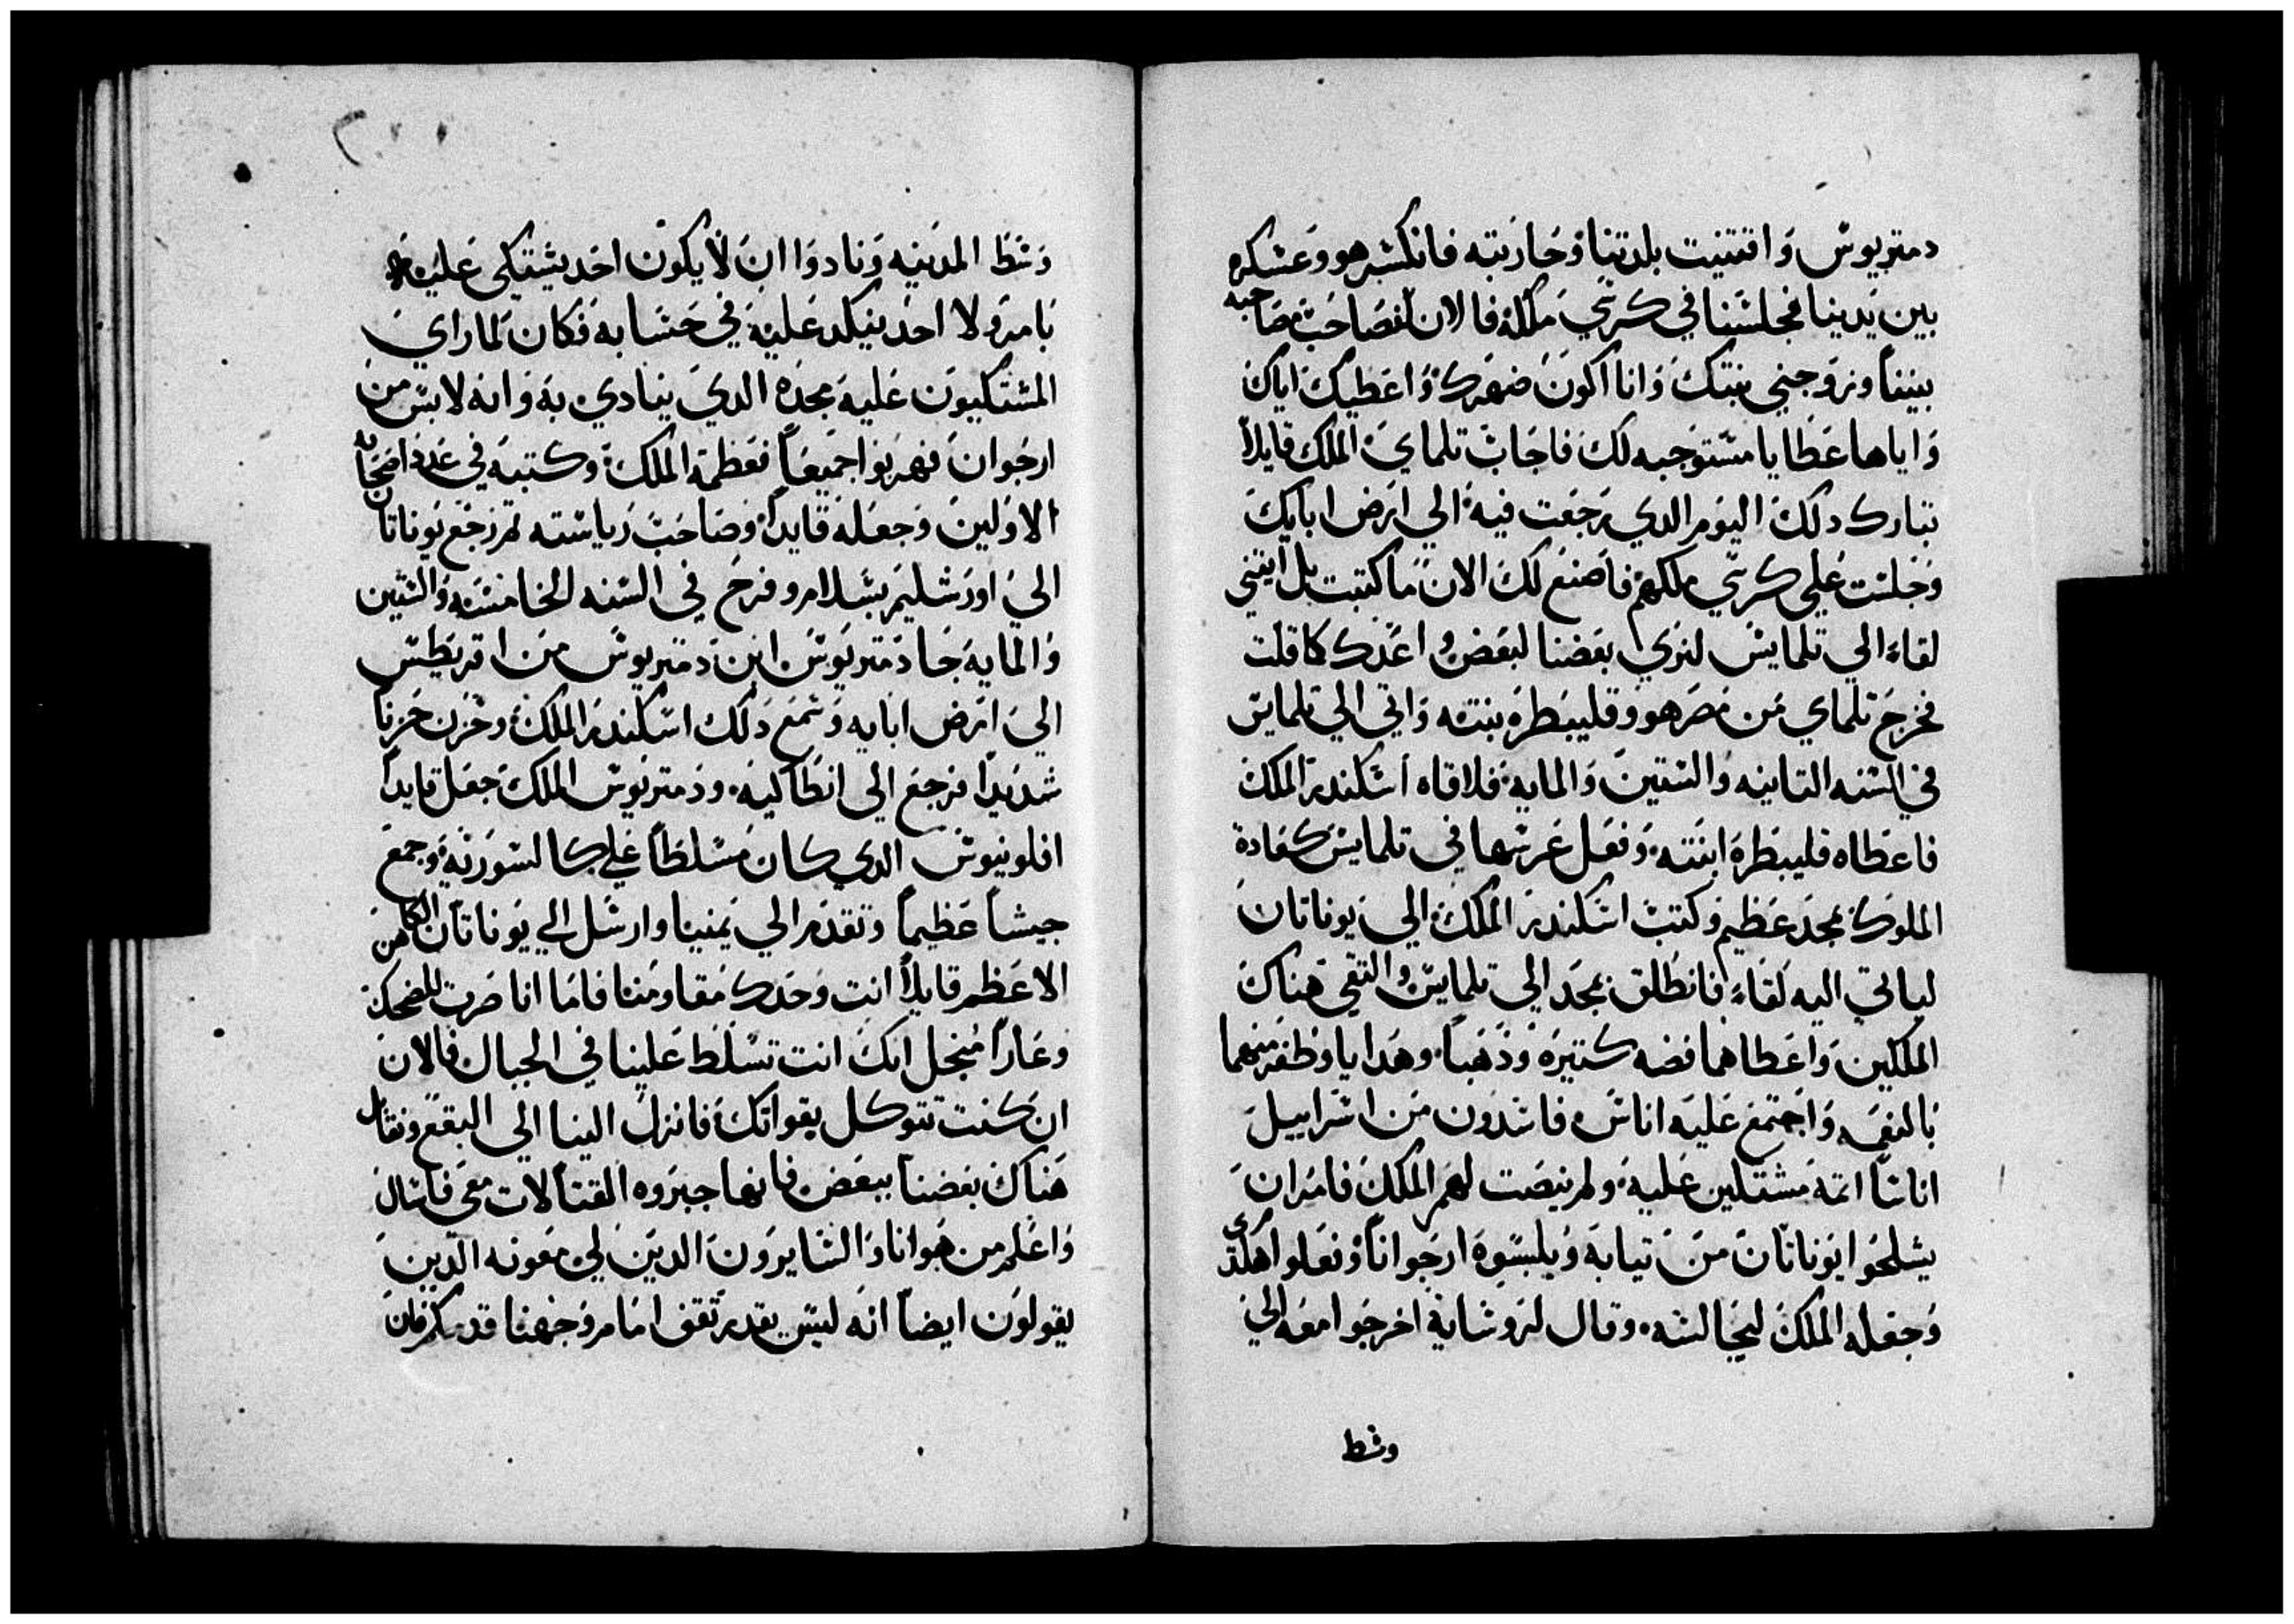 دمتريوس واقتنيت بلدتنا وحاربته فانكسر هو وعسكره
بين يدينا فجلسنا في كرسي ملكه فالان لنصاحب مصاحبه
بيننا وزوجني بنتك وانا اكون صهرك واعطيك اياك
واياها عطايا مستوجبه لك فاجاب تلماي الملك قايلاً
تبارك دلك اليوم الدي رجعت فيه الي ارض ابايك
وجلست علي كرسي ملكهم فاصنع لك الان ما كتبت بل ايتني
لقاء الي تلمايس لنري بعضنا لبعض واعدك كما قلت
فخرج تلماي من مصر هو وقليبطره بنته واتي الي تلمايس
في السنه التانيه والستين والمايه فلاقاه اسكندر الملك
فاعطاه قليبطرة ابنته وفعل عرسها في تلمايس كعادة
الملوك بمجد عظيم وكتب اسكندر الملك الي يوناتان
لياتي اليه لقاء فانطلق بمجد الي تلمايس والتقي هناك
الملكين واعطاهما فضه كتيره وذهباً وهدايا وظفر منهما
بالنعمه واجتمع عليه اناس فاسدون من اسراييل
اناسا اتمه مشتكين عليه ولم ينصت لهم الملك فامر ان
يشلحوا يوناتان من تيابه ويلبسوه ارجواناً وفعلوا هكدي
وجعله الملك ليجالسه وقال لروسايه اخرجوا معه الي
وسط
وسط المدينه ونادوا ان لا يكون احد يشتكي عليه
بامر ولا احد ينكد عليه في حسابه فكان لما راي
المشتكيون عليه مجده الدي ينادي به وانه لابس من
ارجوان فهربوا جميعاً فعظمه الملك وكتبه في عدد اصحابه
الاولين وجعله قايداً وصاحب رياسته تم رجع يوناتان
الي اورشليم بسلام وفرح في السنه الخامسه والستين
والمايه جا دمتريوس ابن دمتريوس من اقريطس
الي ارض ابايه وسمع دلك اسكندر الملك وحزن حزناً
شديدا فرجع الي انطاكيه ودمتريوس الملك جعل قايداً
افلونيوس الدي كان مسلطاً علي كالسوريه وجمع
جيشاً عظيماً وتقدم الي يمنيا وارسل الي يوناتان الكاهن
الاعظم قايلاً انت وحدك مقاومنا فاما انا صرت للضحك
وعاراً منجل انك انت تسلط علينا في الجبال فالان
ان كنت تتوكل بقواتك فانزل الينا الي البقع ونقاتل
هناك بعضنا ببعض فانها جبروه القتالات معي فاسال
واعلم من هو انا والسايرون الدين لي معونه الدين
يقولون ايضاً انه ليس يقدر تقف امام وجهنا قدمكم فان